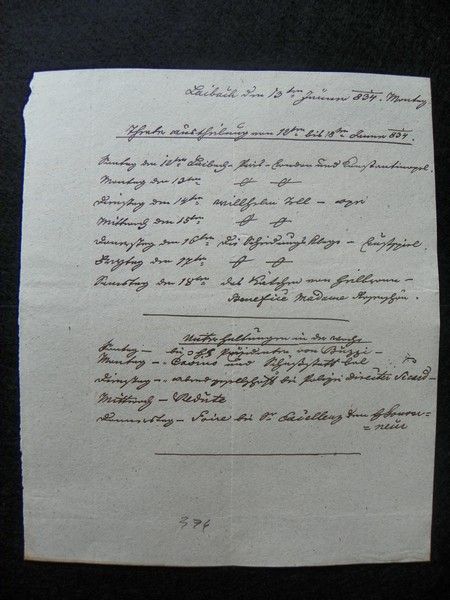 Laibach den 13ten Jänner 834. Montag
Theater austheilung von 12ten bis 18ten Jänner 834.
Sontag den 12ten Laibach - Paris - London und Constantinopel.
Montag den 13ten
Dienstag den 14ten Willhelm Tell -
Mittwoch den 15ten
Donnerstag den 16ten Die Scheidungs - Lustspiel.
Freytag den 17ten
Samstag den 18ten das Kätchen von Heilbronn -
Benefice Madame
Unterhaltungen in der woche
Sontag - bei Präsidenten von Buzzi -
Montag - Casino und Schießstatt bal
Dienstag - abend gesellschaft bei Polizei director Sicard -
Mittwoch - Redute
Donnerstag - Soire bei Sr Excellenz dem Gouver-
=neur
374